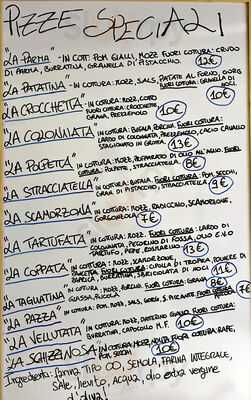 PIZZE SPECIALI
"LA PARMA" - IN COTT: POM GIALLI, MOZZ FUORI COTTURA: CRUDO
DI PARMA, BURRATINA, GRANELLA DI PISTACCHIO. 12€
"LA PATATINA" - IN COTTURA: MOZZ, SALS, PATATE AL FORNO,
FUORI COTTURA: GRANELLA DI NOCI 10€
"LA CROCCHETTA" - IN COTTURA: MOZZ, COTTO
FUORI COTTURA: CROCCHETTE,
GRANA, PREZZEMOLO 10€
"LA COLONNATA" IN COTTURA: BUFALA, PORCINI FUORI COTTURA:
LARDO DI COLONNATA, PREZZEMOLO, CACIO CAVALLO
STAGIONATO IN GROTTA 13€
"LA POLPETTA" IN COTTURA: MOZZ, PREPARATO DI OLIO ALL'AGLIO FUORI
COTTURA: POLPETTE, STRACCIATELLA 8€
"LA STRACCIATELLA" IN COTTURA: FUORI COTTURA: POM. SECCHI,
GRAN. DI PISTACCHIO, STRACCIATELLA 9€
"LA SCAMORZONA" IN COTTURA: MOZZ, RADICCHIO, SCAMORZONE,
GORGONZOLA 7€
"LA TARTUFATA" IN COTTURA: MOZZ. FUORI COTTURA: LARDO DI
COLONNATA, PECORINO DI FOSSA, OLIO E.V.O
TARTUFO, PEPE, 13€
"LA COPPATA" IN COTTURA: MOZZ, SCAMORZONE,
PANCETTA FUORI COTTURA: CIPOLLA DI TROPEA, POLVERE DI
SCAGLIE DI NOCI 11€
"LA TAGLIATINA" IN COTTURA: MOZZ, PORCINI FUORI COTTURA: GRANA,
RUCOLA 8€
"LA PAZZA" IN COTTURA: POM, MOZZ, SALS, GORG, S. PICCANTE 7€
"LA VELLUTATA" IN COTTURA: MOZZ, DATTERINO GIALLO FUORI COTTURA:
BURRATINA, CAPOCOLLO M.F. 10€
"LA SCHIZZINOSA" IN COTTURA: MOZZ, FUORI COTTURA: RAPE,
POM. SECCHI 10€
Ingredienti: farina TIPO 00, SEMOLA, FARINA INTEGRALE,
sale, lievito, acqua, olio extra vergine
d'oliva!